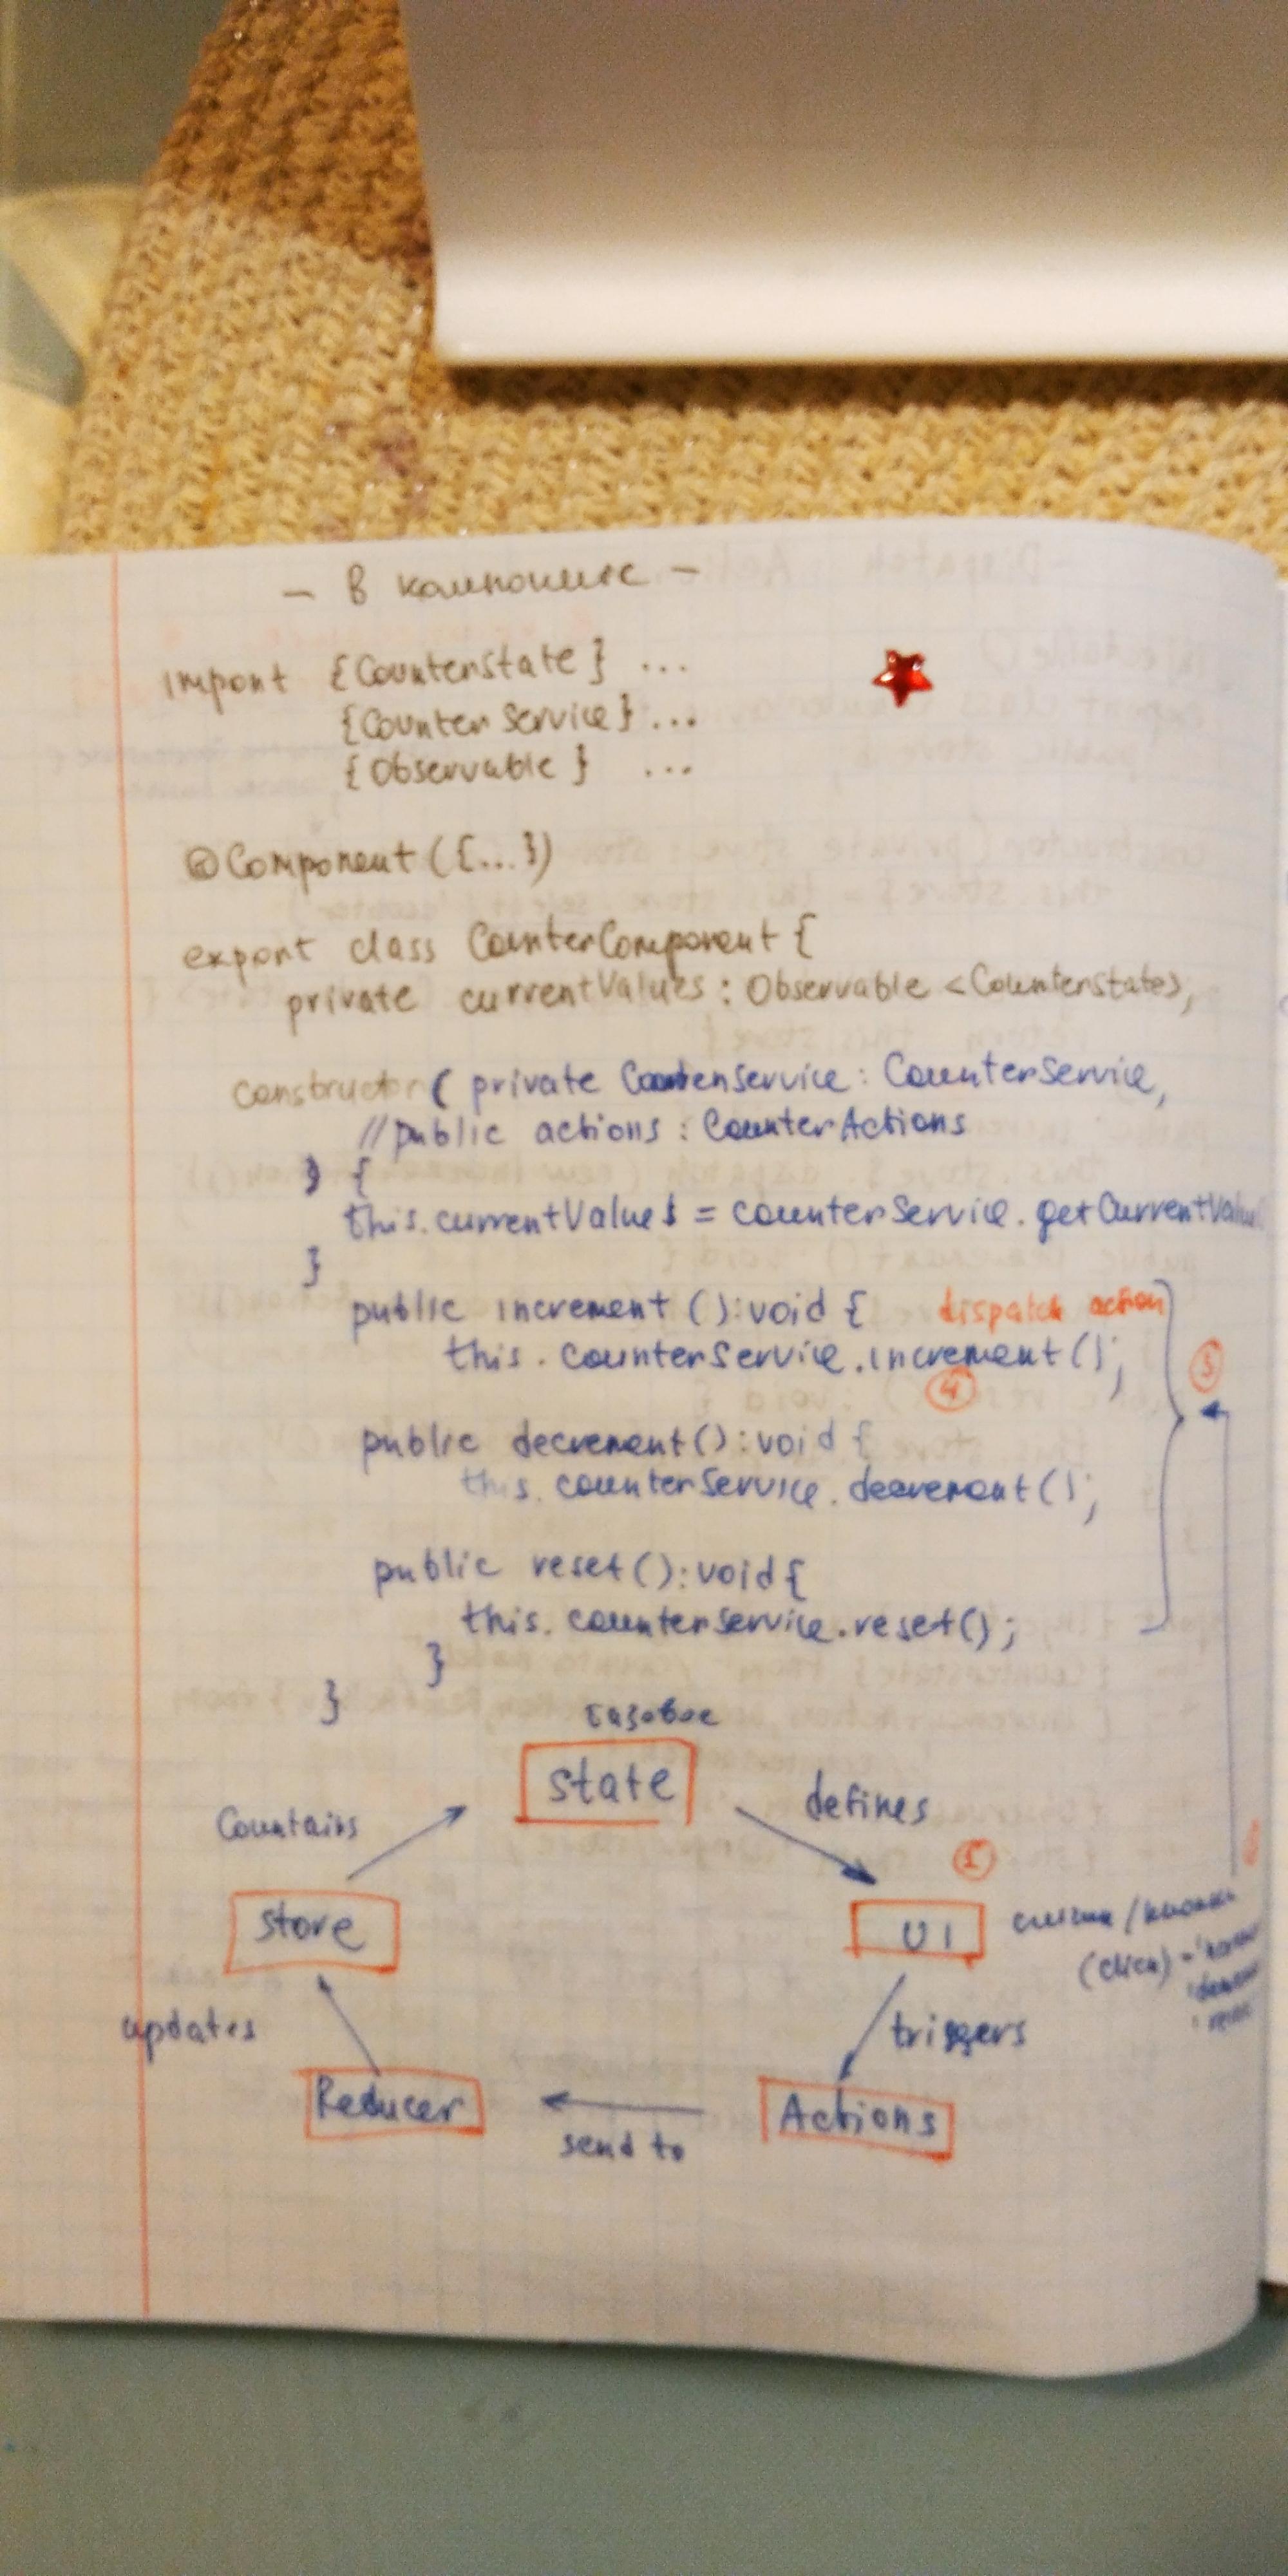 – В компоненте –
import {CounterState} ...
{CounterService} ...
{Observable} ...
@Component({...})
export class CounterComponent {
private currentValue$ : Observable <CounterState>;
constructor ( private CounterService : CounterService,
//public actions : CounterActions
) {
this.currentValue$ = counterService.getCurrentValue
}
public increment ():void { dispatch action
this.counterService.increment();
④
public decrement():void {
this.counterService.decrement();
public reset():void{
this.counterService.reset();
}
}
базовое
state
Countains
defines
①
store
UI
(click) =
updates
triggers
Reducer
Actions
send to